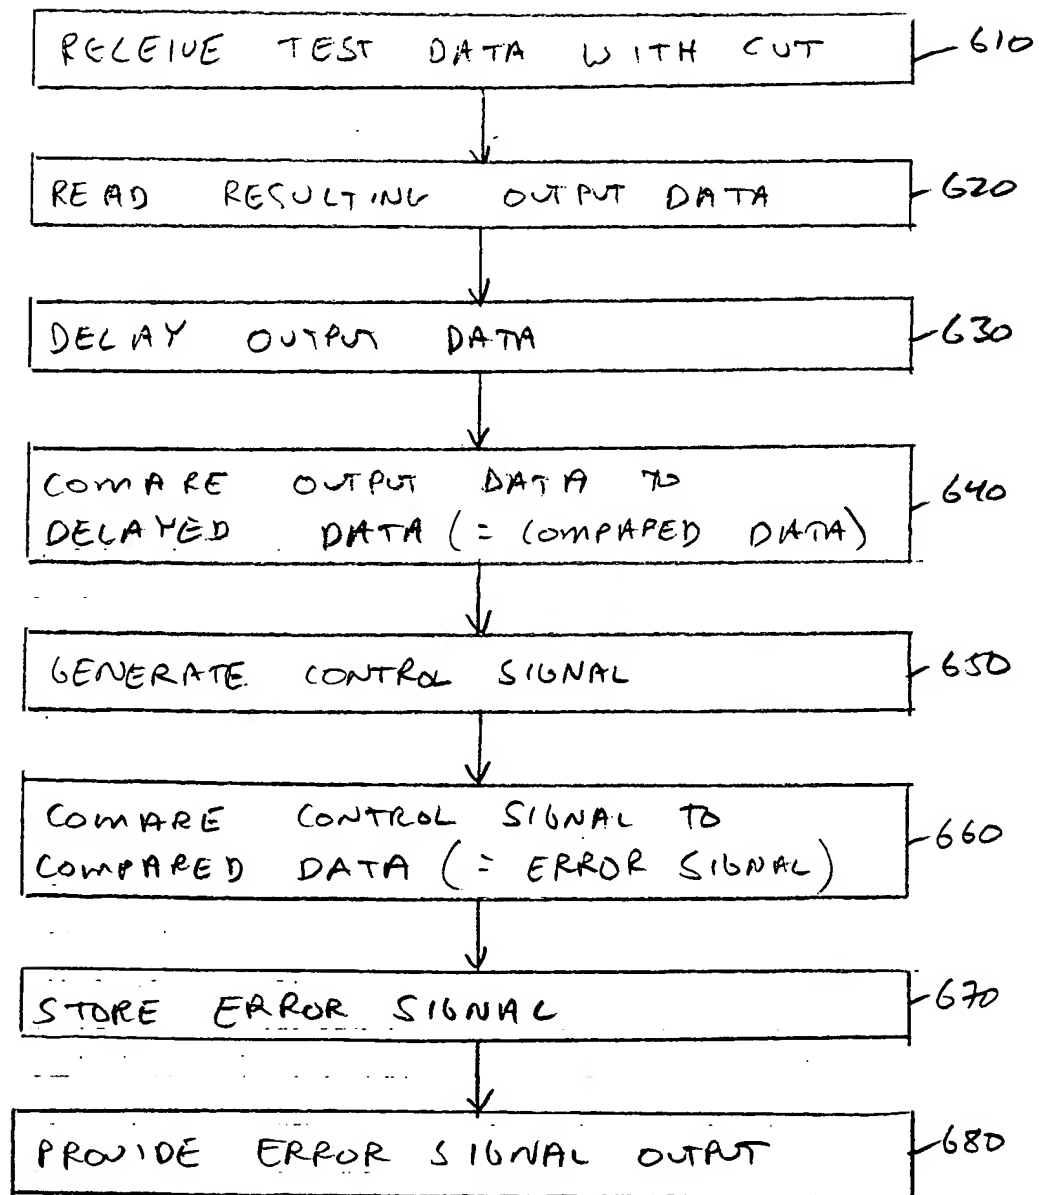 RECEIVE TEST DATA WITH CUT
610
READ RESULTING OUTPUT DATA
620
DELAY OUTPUT DATA
630
COMPARE OUTPUT DATA TO
DELAYED DATA (= COMPARED DATA)
640
GENERATE CONTROL SIGNAL
650
COMPARE CONTROL SIGNAL TO
COMPARED DATA (= ERROR SIGNAL)
660
STORE ERROR SIGNAL
670
PROVIDE ERROR SIGNAL OUTPUT
680